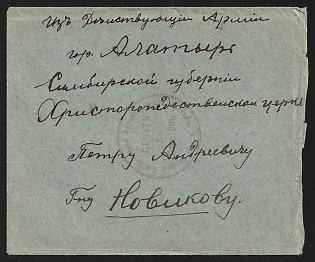 Изъ Дѣйствующій Арміи
гор. Алатырь
Симбирской губерніи
Христорождественская церкв
Петру Андреевичу
Гну Новикову.